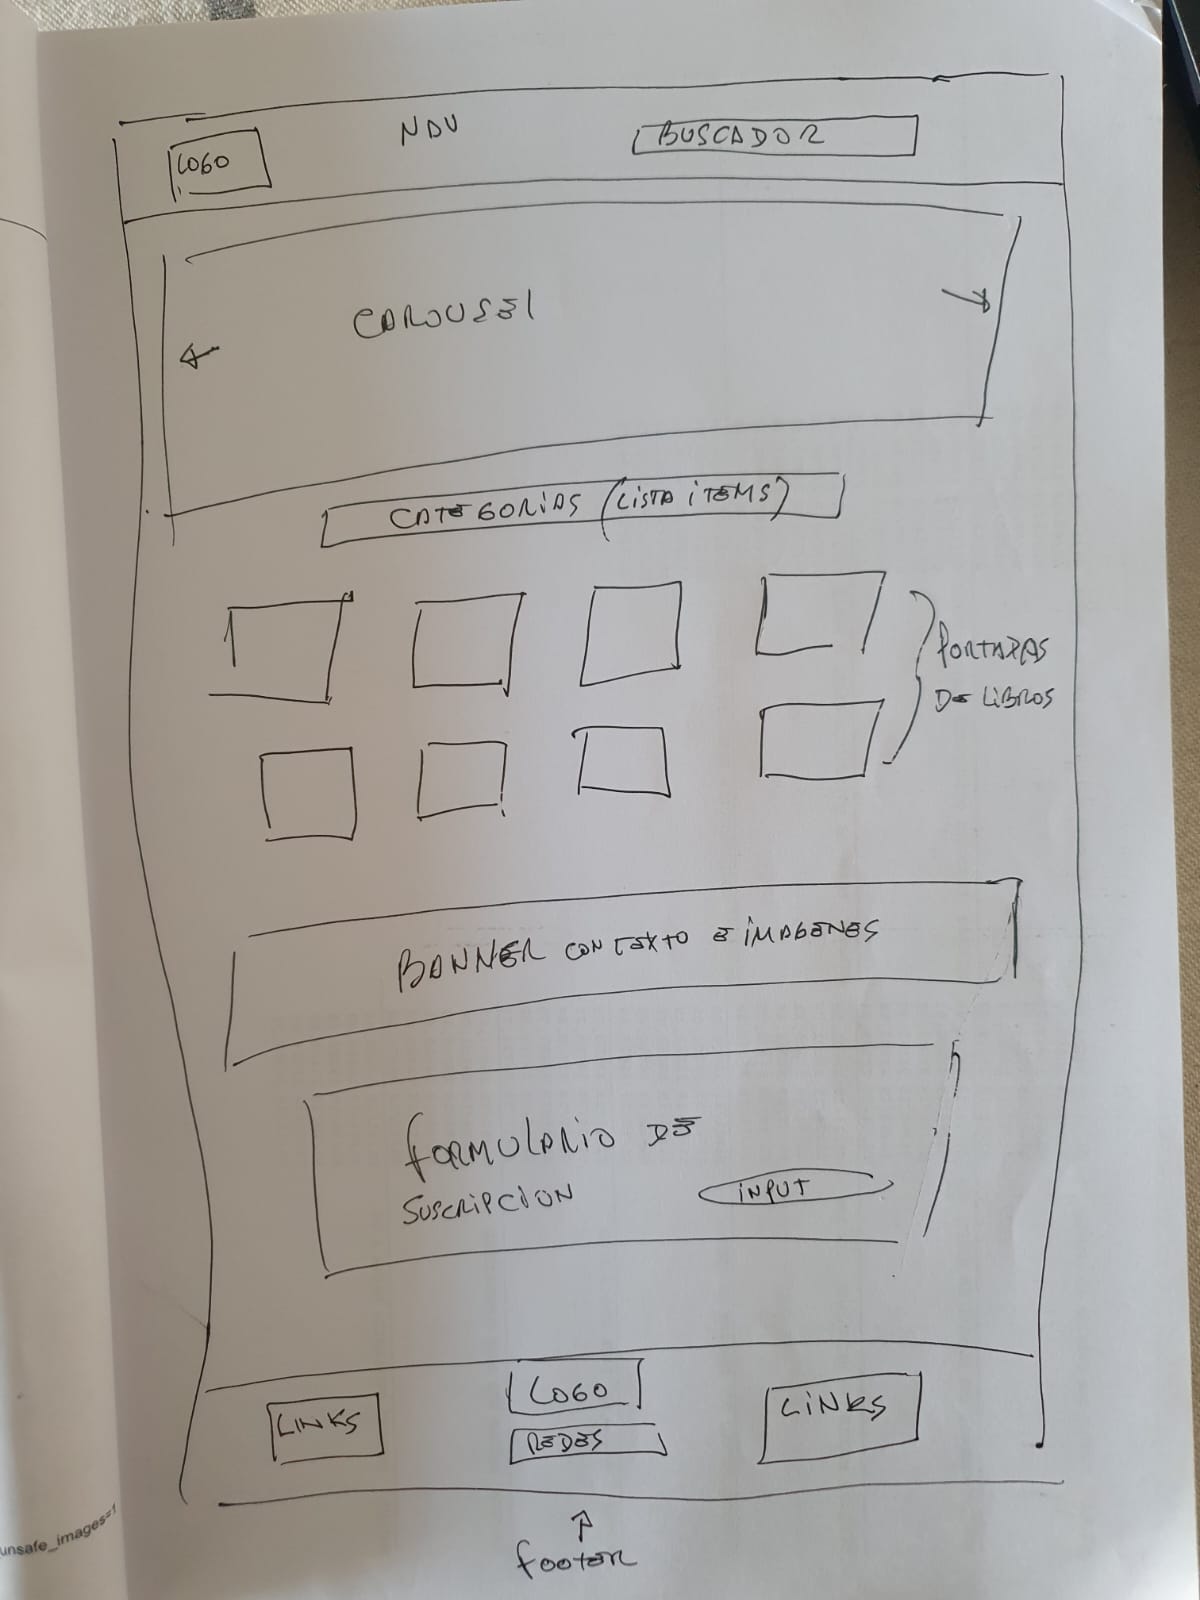 LOGO
NAV
BUSCADOR
CAROUSEL
CATEGORIAS (LISTA ITEMS)
PORTADAS
DE LIBROS
BANNER CON TEXTO E IMAGENES
FORMULARIO DE
SUSCRIPCION
INPUT
LINKS
LOGO
REDES
LINKS
footer
unsafe_images=1